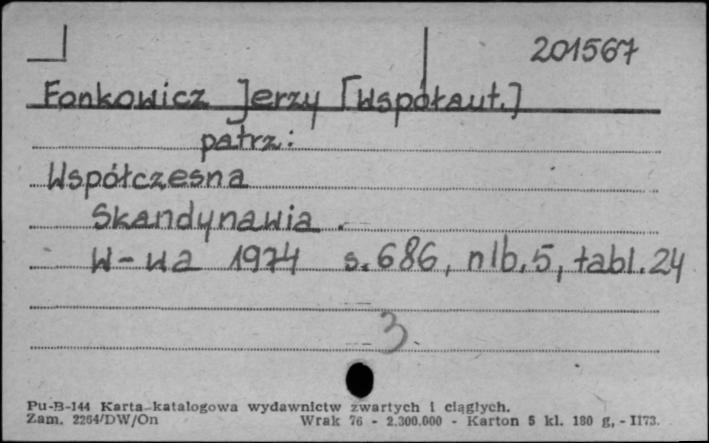 201567
Fonkowicz Jerzy [Współaut.]
patrz:
Współczesna
Skandynawia.
W-wa 1974 s. 686, nlb. 5, tabl. 24
3
Pu-B-144 Karta katalogowa wydawnictw zwartych i ciągłych.
Zam. 2264/DW/On Wrak 76 - 2.300.000 - Karton 5 kl. 180 g, - II73.